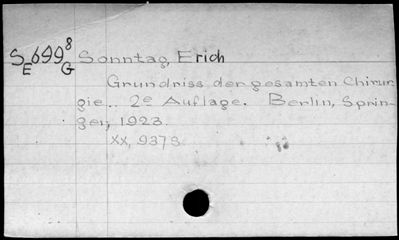 S699⁸ Sonntag, Erich
E G
Grundriss der gesamten Chirur-
gie.. 2e Auflage. Berlin, Sprin-
ger, 1923.
XX, 937 S.